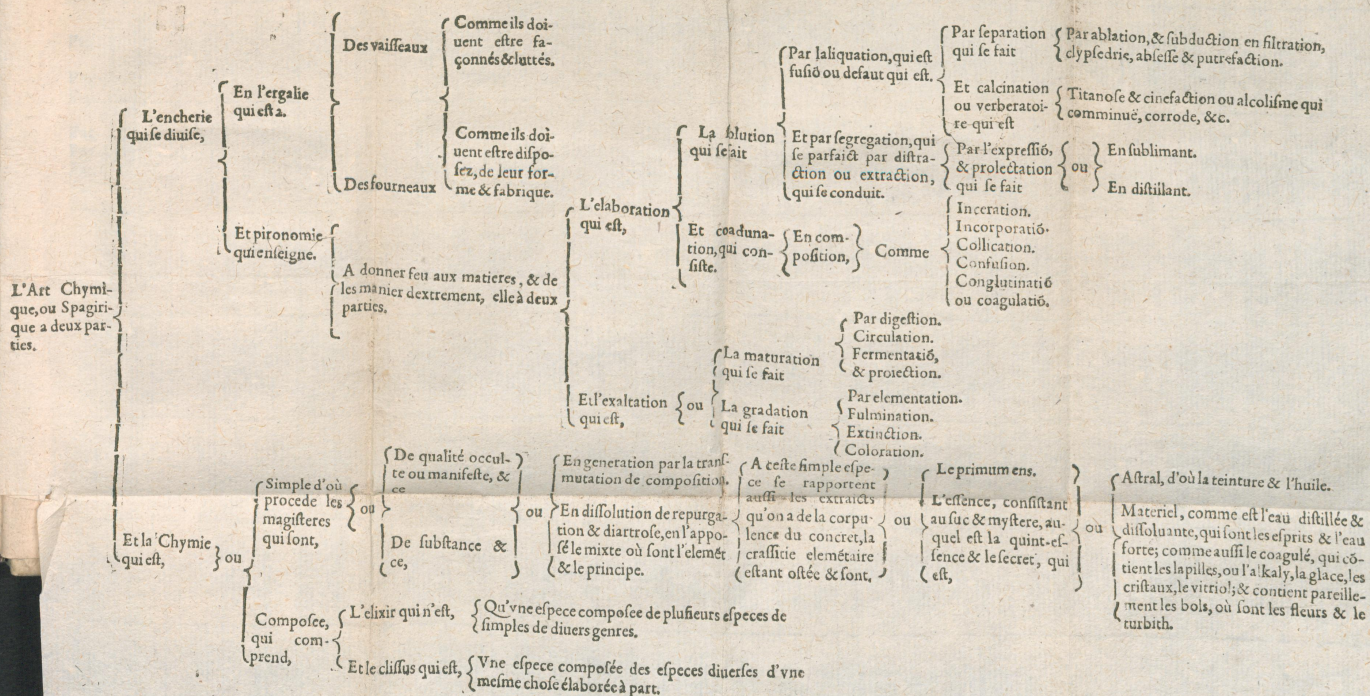 L'Art Chymi-
que, ou Spagiri-
que a deux par-
ties.
L'encherie
qui se diuise,
En l'ergalie
qui est 2.
Des vaisseaux
Comme ils doi-
uent estre fa-
çonnés & luttés.
Des fourneaux
Comme ils doi-
uent estre dispo-
sez, de leur for-
me & fabrique.
Et pironomie
qui enseigne.
A donner feu aux matieres, & de
les manier dextrement, elle à deux
parties.
L'elaboration
qui est,
La blution
qui se ait
Par laliquation, qui est
fusiō ou defaut qui est.
Par separation
qui se fait
Par ablation, & subduction en filtration,
clypsedrie, absesse & putrefaction.
Et calcination
ou verberatoi-
re qui est
Titanose & cinefaction ou alcolisme qui
comminuë, corrode, &c.
Et par segregation, qui
se parfaict par distra-
ction ou extraction,
qui se conduit.
Par l'expressiō,
& prolectation
qui se fait
ou
En sublimant.
En distillant.
Et coaduna-
tion, qui con-
siste.
En com-
position,
Comme
Inceration.
Incorporatiō.
Collication.
Confusion.
Conglutinatiō
ou coagulatiō.
Et l'exaltation
qui est,
ou
La maturation
qui se fait
Par digestion.
Circulation.
Fermentatiō,
& proiection.
La gradation
qui se fait
Par elementation.
Fulmination.
Extinction.
Coloration.
Et la Chymie
qui est,
ou
Simple d'où
procede les
magisteres
qui sont,
ou
De qualité occul-
te ou manifeste, &
ce
De substance &
ce,
ou
En generation par la trans-
mutation de composition.
En dissolution de repurga-
tion & diartrose, en l'appo-
sé le mixte où sont l'elemēt
& le principe.
A ceste simple espe-
ce se rapportent
aussi les extraicts
qu'on a de la corpu-
lence du concret, la
crassitie elemētaire
estant ostée & sont.
ou
Le primum ens.
L'essence, consistant
au suc & mystere, au-
quel est la quint-es-
sence & le secret, qui
est,
ou
Astral, d'où la teinture & l'huile.
Materiel, comme est l'eau distillée &
dissoluante, qui sont les esprits & l'eau
forte; comme aussi le coagulé, qui cō-
tient les lapilles, ou l'alkaly, la glace, les
cristaux, le vitriol; & contient pareille-
ment les bols, où sont les fleurs & le
turbith.
Composee,
qui com-
prend,
L'elixir qui n'est,
Qu'vne espece composee de plusieurs especes de
simples de diuers genres.
Et le clissus qui est,
Vne espece composée des especes diuerses d'vne
mesme chose élaborée à part.